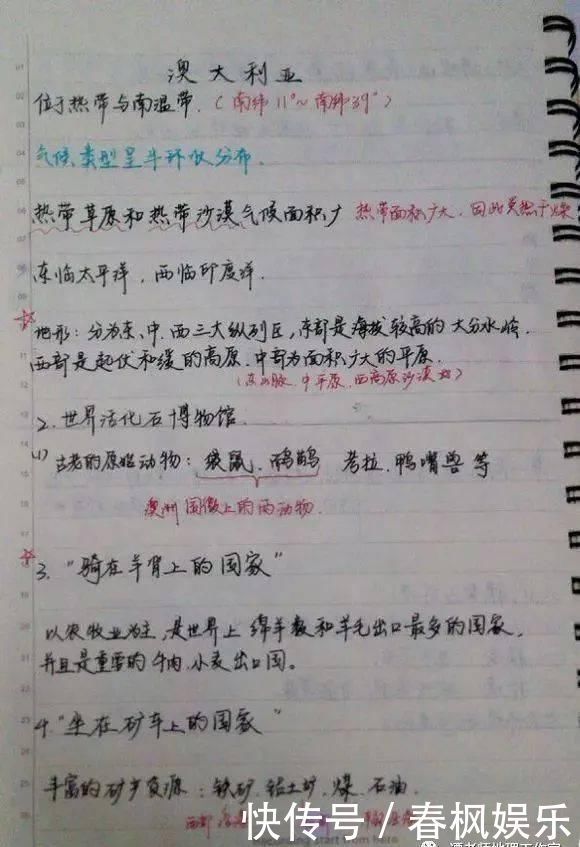 澳大利亚
位于热带与南温带.（南纬11°~南纬39°）
气候类型呈半环状分布.
热带草原和热带沙漠气候面积广 热带面积广大.因此炎热干燥
东临太平洋，西临印度洋.
☆地形：分为东.中.西三大纵列区，东部是海拔较高的大分水岭.
西部是起伏和缓的高原.中部为面积广大的平原.
（东山脉.中平原.西高原沙漠）
2.世界活化石博物馆.
(1) 古老的原始动物：袋鼠.鸸鹋 考拉.鸭嘴兽等
澳洲国徽上的两动物.
☆3."骑在羊背上的国家"
以农牧业为主，是世界上绵羊数和羊毛出口最多的国家，
并且是重要的牛肉.小麦出口国。
4."坐在矿车上的国家"
丰富的矿产资源：铁矿.铝土矿.煤.石油.
西部
快传号／春枫娱乐
start from here